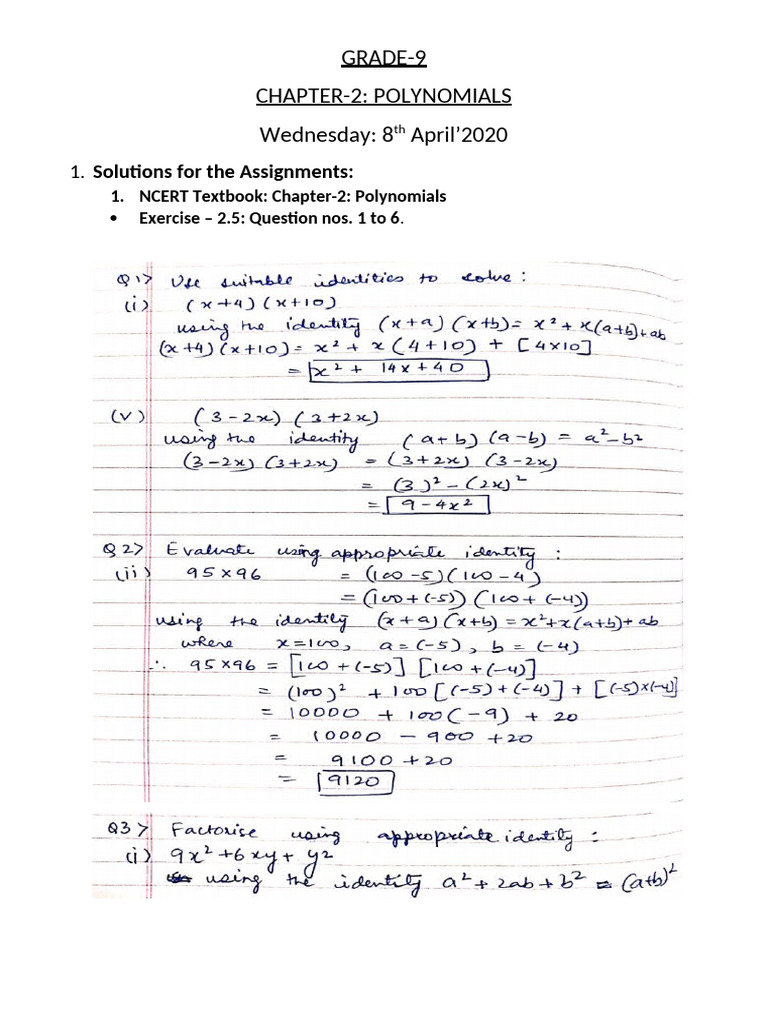 GRADE-9
CHAPTER-2: POLYNOMIALS
Wednesday: 8th April’2020
1. Solutions for the Assignments:
1. NCERT Textbook: Chapter-2: Polynomials
• Exercise – 2.5: Question nos. 1 to 6.
Q 1> Use suitable identities to solve :
(i) (x+4) (x+10)
using the identity (x+a) (x+b) = x² + x(a+b)+ab
(x+4) (x+10) = x² + x (4+10) + [4×10]
= x² + 14x + 40
(v) (3-2x) (3+2x)
using the identity (a+b) (a-b) = a²-b²
(3-2x) (3+2x) = (3+2x) (3-2x)
= (3)² - (2x)²
= 9-4x²
Q 2> Evaluate using appropriate identity :
(ii) 95×96 = (100-5) (100-4)
= (100+(-5)) (100+(-4))
using the identity (x+a) (x+b) = x²+x(a+b)+ab
where x=100, a=(-5), b=(-4)
∴ 95×96 = [100+(-5)] [100+(-4)]
= (100)² + 100[(-5)+(-4)] + [(-5)×(-4)]
= 10000 + 100(-9) + 20
= 10000 - 900 +20
= 9100+20
= 9120
Q3> Factorise using appropriate identity :
(i) 9x²+6xy+y²
using the identity a²+2ab+b² = (a+b)²